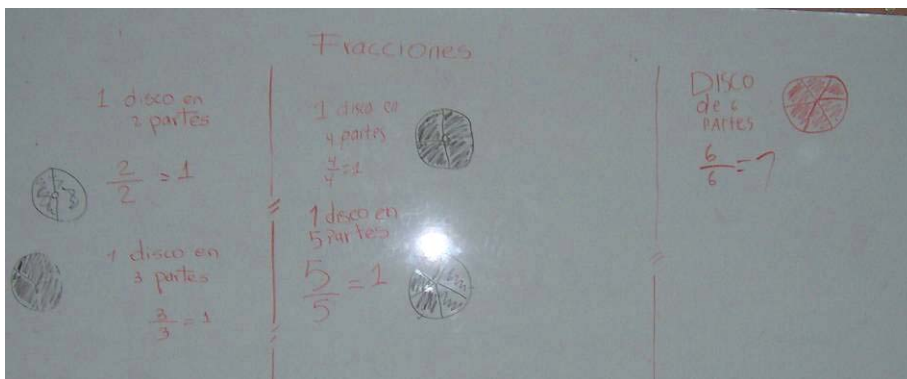 Fracciones
1 disco en
2 partes
2/2 = 1
1 disco en
3 partes
3/3 = 1
1 disco en
4 partes
4/4 = 1
1 disco en
5 Partes
5/5 = 1
DISCO
de 6
PARTES
6/6 = 1